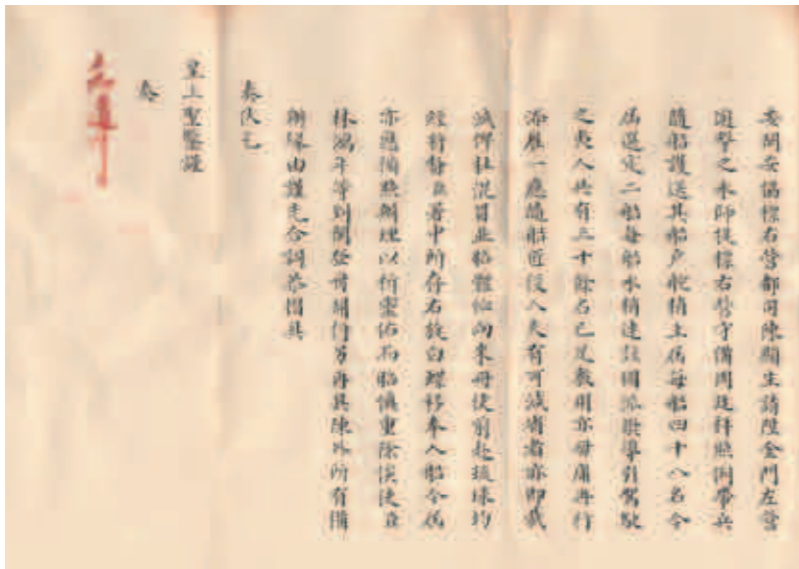 安閩安協標右營都司陳顯生請陞金門左營
遊擊之水師提標右營守備周廷祥照例帶兵
隨船護送其船戶舵稍土伍每船四十八名今
屆選定二船每船水稍連該國派撥導引駕駛
之夷人共有三十餘名已足敷用亦毋庸再行
添雇一應隨船匠役人夫有可減省者亦即裁
減俾杜混冒並船體恤向來冊使前赴琉球均
經行督臣署中所存右旋白螺移奉入船今屆
亦應循照辦理以祈靈佑而昭慎重除俟使臣
林鴻年等到閩登舟開行另再具陳外所有備
辦緣由謹先合詞恭摺具
奏伏乞
皇上聖鑒謹
奏
知道了